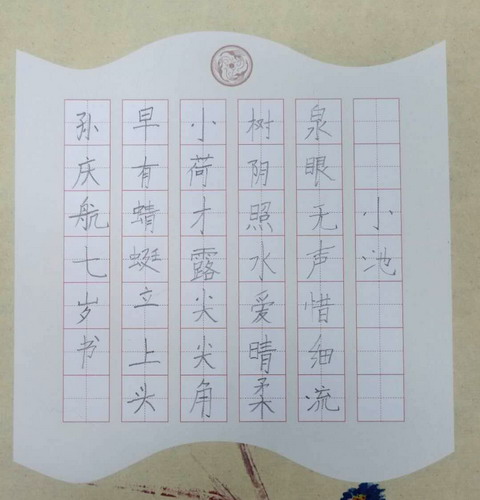 小池
泉眼无声惜细流
树阴照水爱晴柔
小荷才露尖尖角
早有蜻蜓立上头
孙庆航七岁书